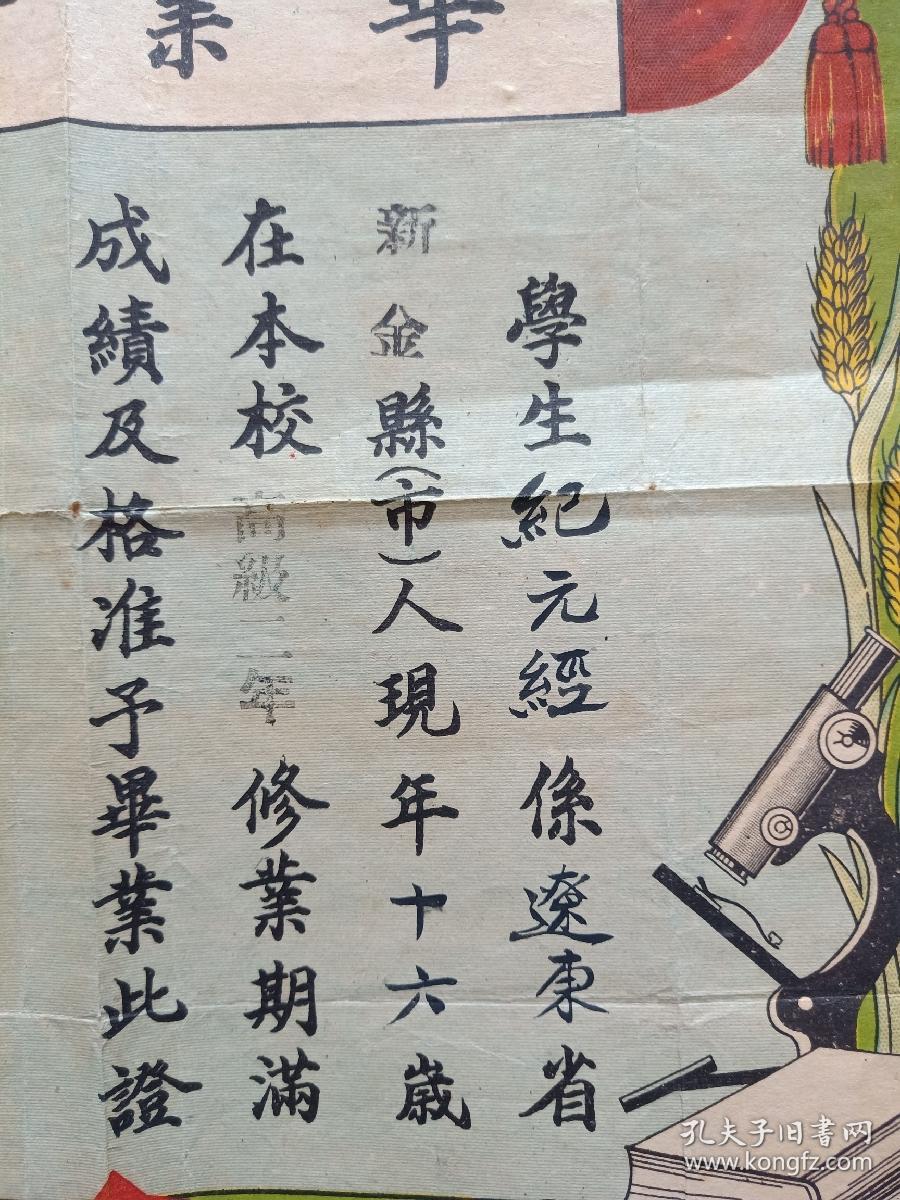 畢業
學生紀元經係遼東省
新金縣(市)人現年十六歲
在本校高級二年修業期滿
成績及格准予畢業此證
孔夫子旧书网
www.kongfz.com